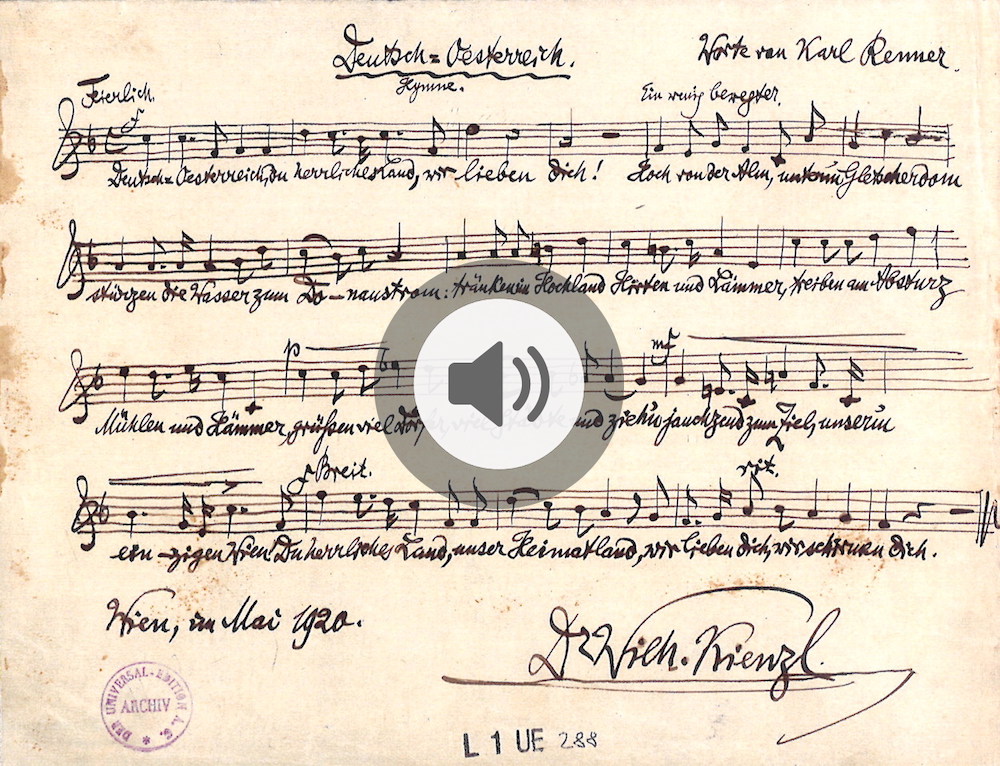 Deutsch=Oesterreich.
Hymne.
Worte von Karl Renner.
Feierlich.
Ein wenig bewegter.
f
Deutsch=Oesterreich, du herrliches Land, wir lieben dich! Hoch von der Alm, unterm Gletscherdom
stürzen die Wasser zum Do-naustrom: tränken im Hochland Hirten und Lämmer, treiben am Absturz
p mf
Mühlen und Hämmer, grüßen viel viel Städte und ziehn jauchzend zum Ziel, unserm
f Breit. rit.
ein-zigen Wien! Du herrliches Land, unser Heimatland, wir lieben dich, wir schirmen dich.
Wien, im Mai 1920.
Dr Wilh. Kienzl.
DER UNIVERSAL-EDITION A. G.
ARCHIV
L 1 UE 288